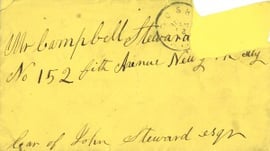 Mr Campbell Steward
No 152 fifth Avenue New
Car of John Steward esqr